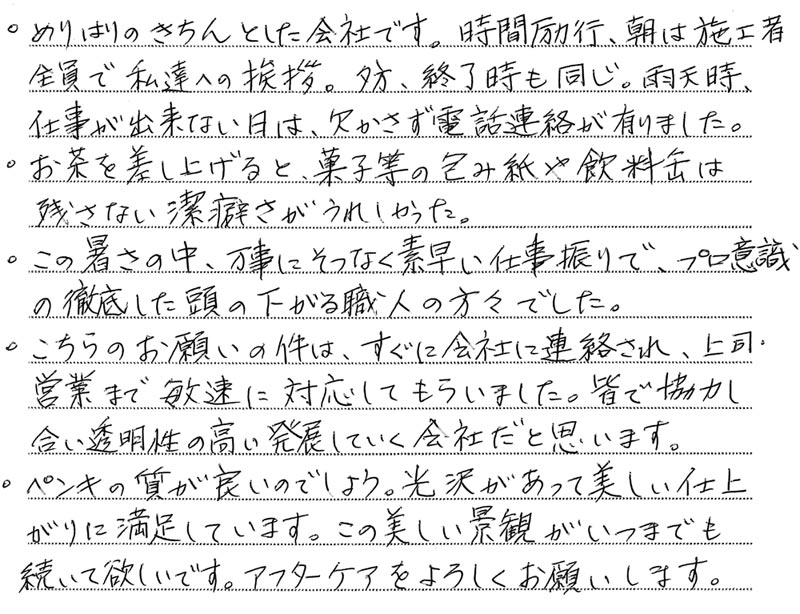 。めりはりのきちんとした会社です。時間励行、朝は施工者
全員で私達への挨拶。夕方、終了時も同じ。雨天時、
仕事が出来ない日は、欠かさず電話連絡が有りました。
。お茶を差し上げると、菓子等の包み紙や飲料缶は
残さない潔癖さがうれしかった。
。この暑さの中、万事にそつなく素早い仕事振りで、プロ意識
の徹底した頭の下がる職人の方々でした。
。こちらのお願いの件は、すぐに会社に連絡され、上司・
営業まで敏速に対応してもらいました。皆で協力し
合い透明性の高い発展していく会社だと思います。
。ペンキの質が良いのでしょう。光沢があって美しい仕上
がりに満足しています。この美しい景観がいつまでも
続いて欲しいです。アフターケアをよろしくお願いします。